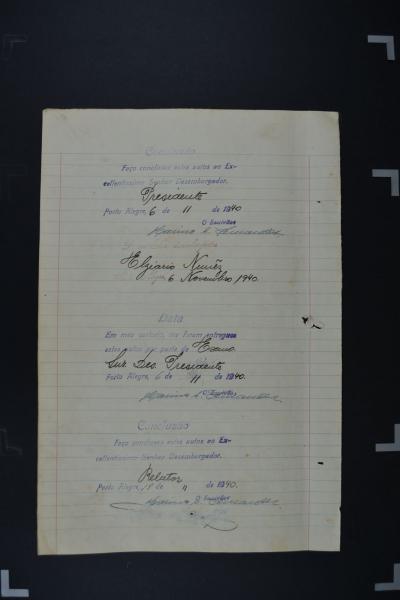 Conclusão
Faço conclusos estes autos ao Ex-
cellentissimo Senhor Desembargador.
Presidente
Porto Alegre, 6 de 11 de 1940
O Escrivão
Marino C. Fernandes
Elziario Nunez
6 Novembro 1940.
Data
Em meu cartorio, me foram entregues
estes autos por parte do Exmo.
Snr. Des. Presidente
Porto Alegre, 6 de 11 de 1940.
O Escrivão
Marino C. Fernandes
Conclusão
Faço conclusos estes autos ao Ex-
cellentissimo Senhor Desembargador.
Relator
Porto Alegre, de 11 de 1940.
O Escrivão
Marino C. Fernandes